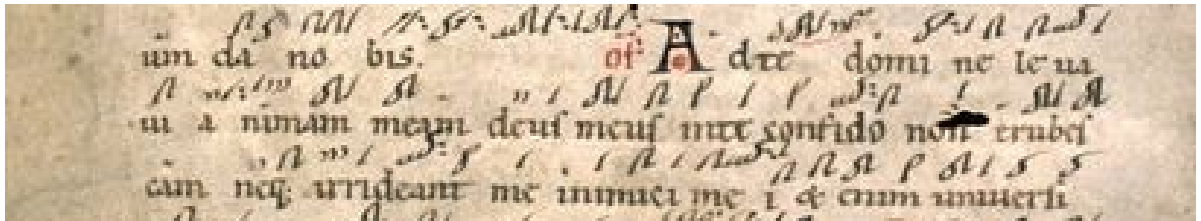 um da no bis. of A dte domi ne le ua
ui a nimam meam deus meus in te confido non erubes
cam neq; irrideant me inimici me i & enim uniuersi